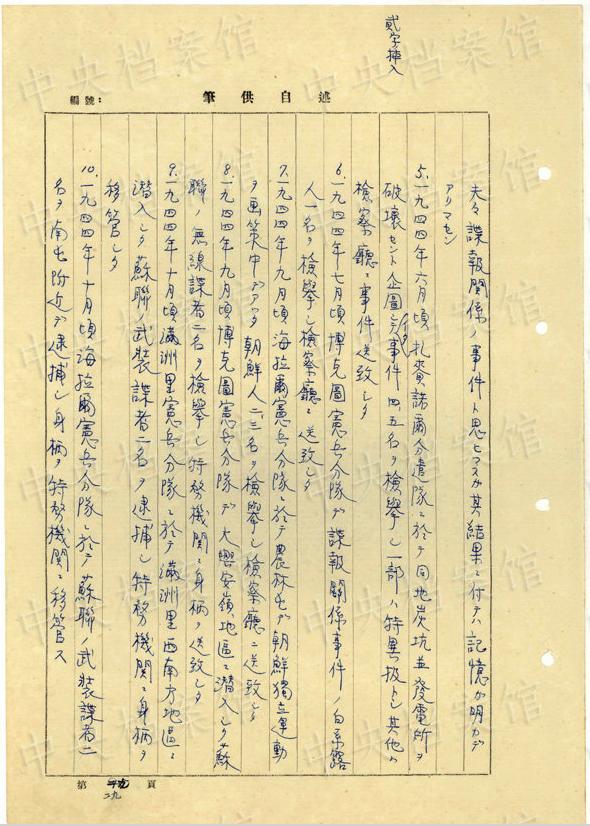 貳字挿入
編號：
筆供自述
夫々諜報関係ノ事件ト思ヒマスガ其結果ニ付テハ記憶ガ明カデ
アリマセン
5.一九四四年六月頃扎賚諾爾分遣隊ニ於テ同地炭坑並發電所ヲ
破壊セント企圖シタ事件四、五名ヲ檢擧シ一部ハ特異扱トシ其他ハ
檢察廳ニ事件送致シタ
6.一九四四年七月頃博克圖憲兵分隊デ諜報関係事件ノ白系露
人一名ヲ檢擧シ檢察廳ニ送致シタ
7.一九四四年九月頃海拉爾憲兵分隊ニ於テ農林屯デ朝鮮獨立運動
ヲ画策中デアツタ朝鮮人二、三名ヲ檢擧シ檢察廳ニ送致シタ
8.一九四四年九月頃博克圖憲兵分隊デ大興安嶺地區ニ潜入シタ蘇
聯ノ無線諜者二名ヲ檢擧シ特務機関ニ身柄ヲ送致シタ
9.一九四四年十月頃滿洲里憲兵分隊ニ於テ滿洲里西南方地區ニ
潜入シタ蘇聯ノ武装諜者二名ヲ逮捕シ特務機関ニ身柄ヲ
移管シタ
10.一九四四年十月頃海拉爾憲兵分隊ニ於テ蘇聯ノ武装諜者二
名ヲ南屯附近デ逮捕シ身柄ヲ特務機関ニ移管ス
第 二九 頁
中央档案馆